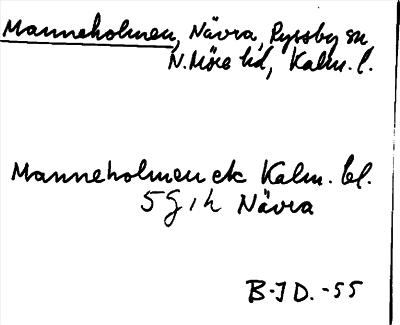 Manneholmen, Nävra, Ryssby sn
N. Möre hd, Kalm. l.
Manneholmen ek Kalm. bl.
5 g, h Nävra
B-JD. -55